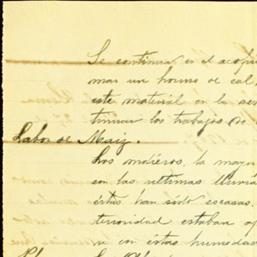 Se continua en el acopi
mar un horno de cal,
este material en la se
trimar los trabajos de
Labor de Maiz.
Los maiceros, la mayo
son las ultimas lluvia
éstas han sido escasas,
terioridad estaban
va con éstas humedad